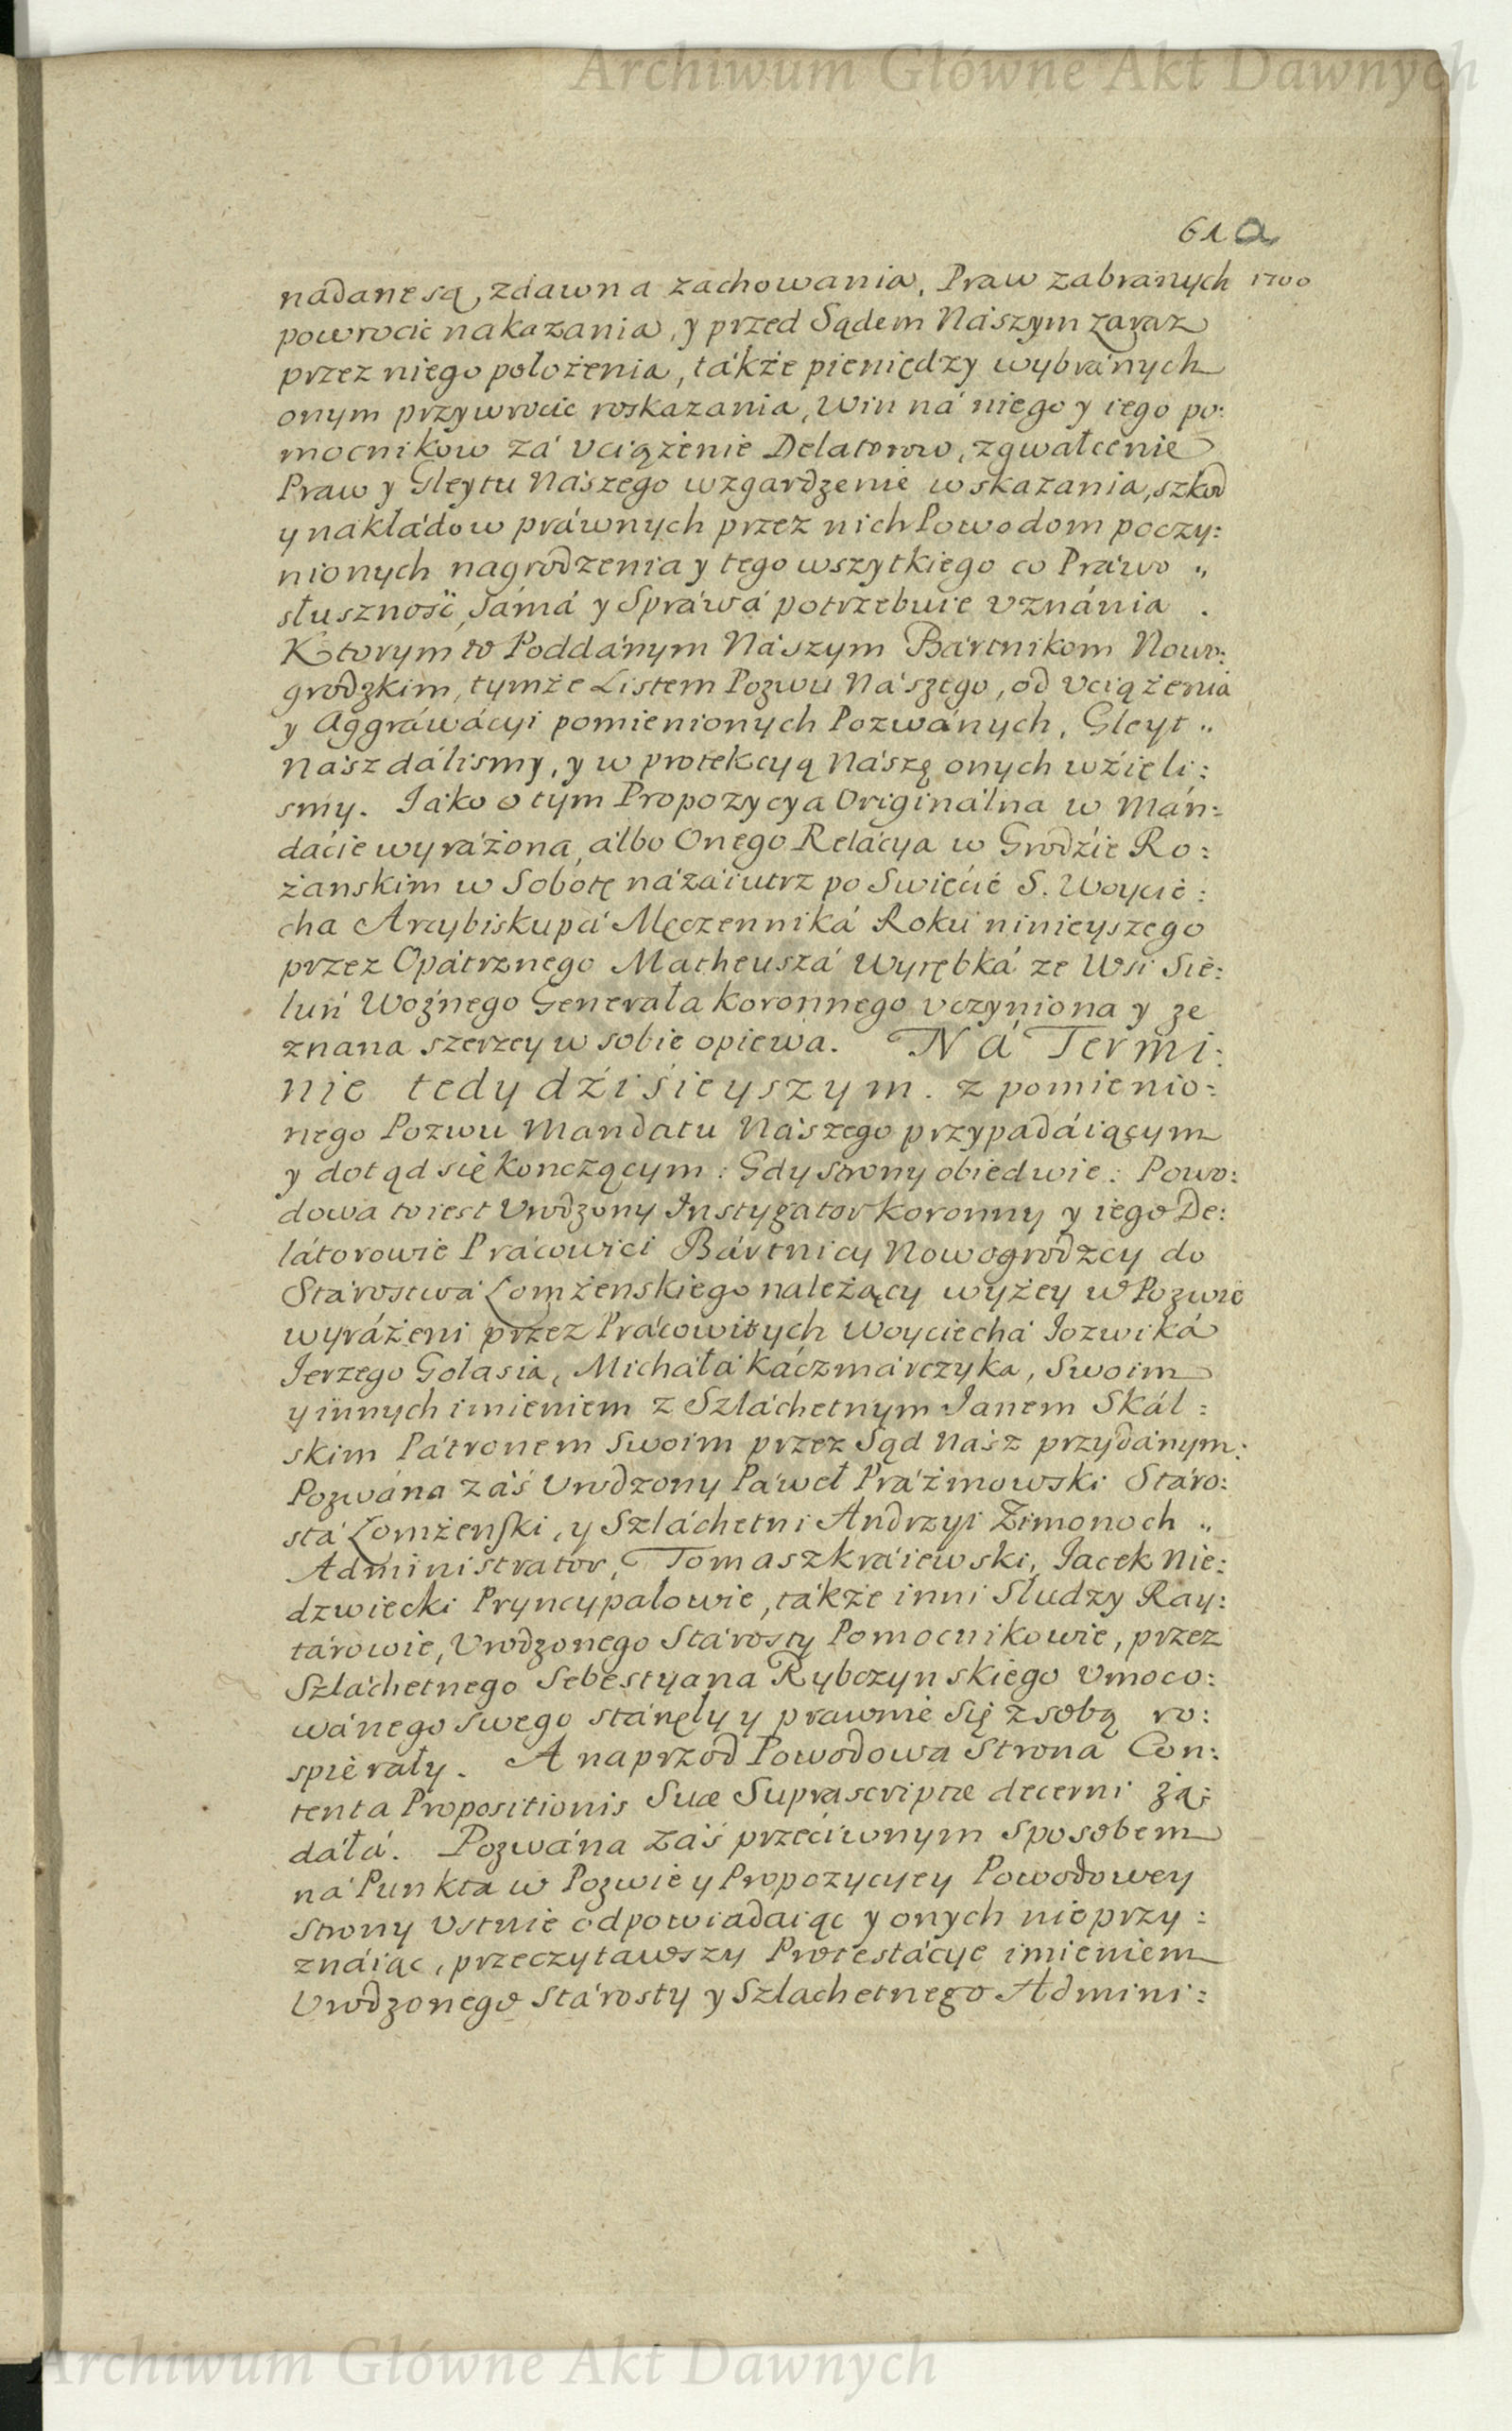 Archiwum Główne Akt Dawnych
61a
nadane są, zdawna zachowania, Praw zabranych 1700
powrocić nakazania, y przed Sądem Nászym zaraz
przez niego położenia, tákże pieniędzy wybránych
onym przywrocić roskazania, Win ná niego y iego po:
mocnikow zá vciążenie Delatorow, zgwałcenie
Praw y Gleytu Nászego wzgardzenie wskazania, szkod
y nakładow práwnych przez nich Powodom poczy:
nionych nagrodzenia y tego wszytkiego co Práwo „
słuszność, Sámá y Spráwá potrzebuie vznánia .
Ktorym to Poddánym Nászym Bártnikom Nowo:
grodzkim, tymże Listem Pozwu Nászego, od vciążenia
y Aggráwácyi pomienionych Pozwánych, Gleyt „
Nász dálismy, y w protekcyą Nászę onych wźięli:
smy. Iáko o tym Propozycya Originálna w Mán:
dácie wyráżona, álbo Onego Relácya w Grodźie Ro:
żanskim w Sobotę názáiutrz po Swięćie S. Woycie:
cha Arcybiskupá Męczenniká Roku ninieyszego
przez Opátrznego Matheuszá Wyrębká ze Wsi Sie:
luń Woźnego Generała Koronnego vczyniona y ze
znana szerzey w sobie opiewa. Ná Termi:
nie tedy dźiśieyszym. z pomienio:
nego Pozwu Mandatu Nászego przypadáiącym
y dotąd się kończącym: Gdy strony obiedwie: Powo:
dowa to iest Vrodzony Instygator Koronny y iego De:
látorowie Prácowici Bártnicy Nowogrodzcy do
Stárostwá Lomżenskiego należący wyżey w Pozwie
wyráżeni przez Prácowitych Woyciechá Iozwiká
Ierzego Golasia, Micháłá Káczmárczyka, Swoim
y innych imieniem z Szláchetnym Ianem Skál:
skim Pátronem Swoim przez Sąd Nász przydánym:
Pozwána záś Vrodzony Páweł Práżmowski Stáro:
stá Lomżenski, y Szláchetni Andrzyi Zimonoch „
Administrator, Tomasz Kráiewski, Iacek Nie:
dzwiecki Pryncypałowie, tákże inni Słudzy Ray:
tárowie, Vrodzonego Stárosty Pomocnikowie, przez
Szláchetnego Sebestyana Rybczynskiego Vmoco:
wánego Swego stánęły y prawnie Się z sobą ro:
spierały. A naprzod Powodowa Strona Con:
tenta Propositionis Suæ Suprascriptæ decerni żą:
dáłá. Pozwána záś przećiwnym sposobem
ná Punkta w Pozwie y Propozycyey Powodowey
Strony Vstnie odpowiadaiąc y onych nie przy:
znáiąc, przeczytawszy Protestácye imieniem
Vrodzonego Stárosty y Szlachetnego Admini:
Archiwum Główne Akt Dawnych